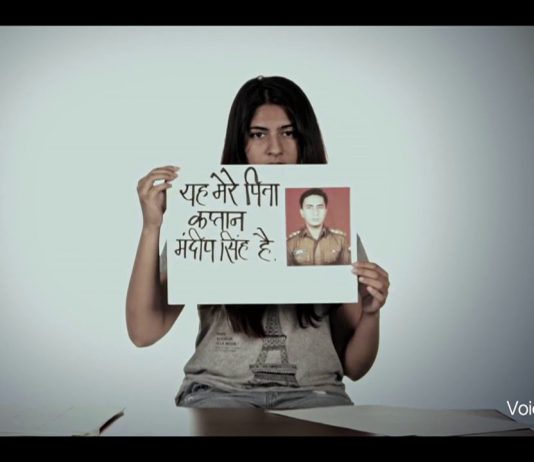 यह मेरे पिता
कप्तान
मंदीप सिंह है.
Voic